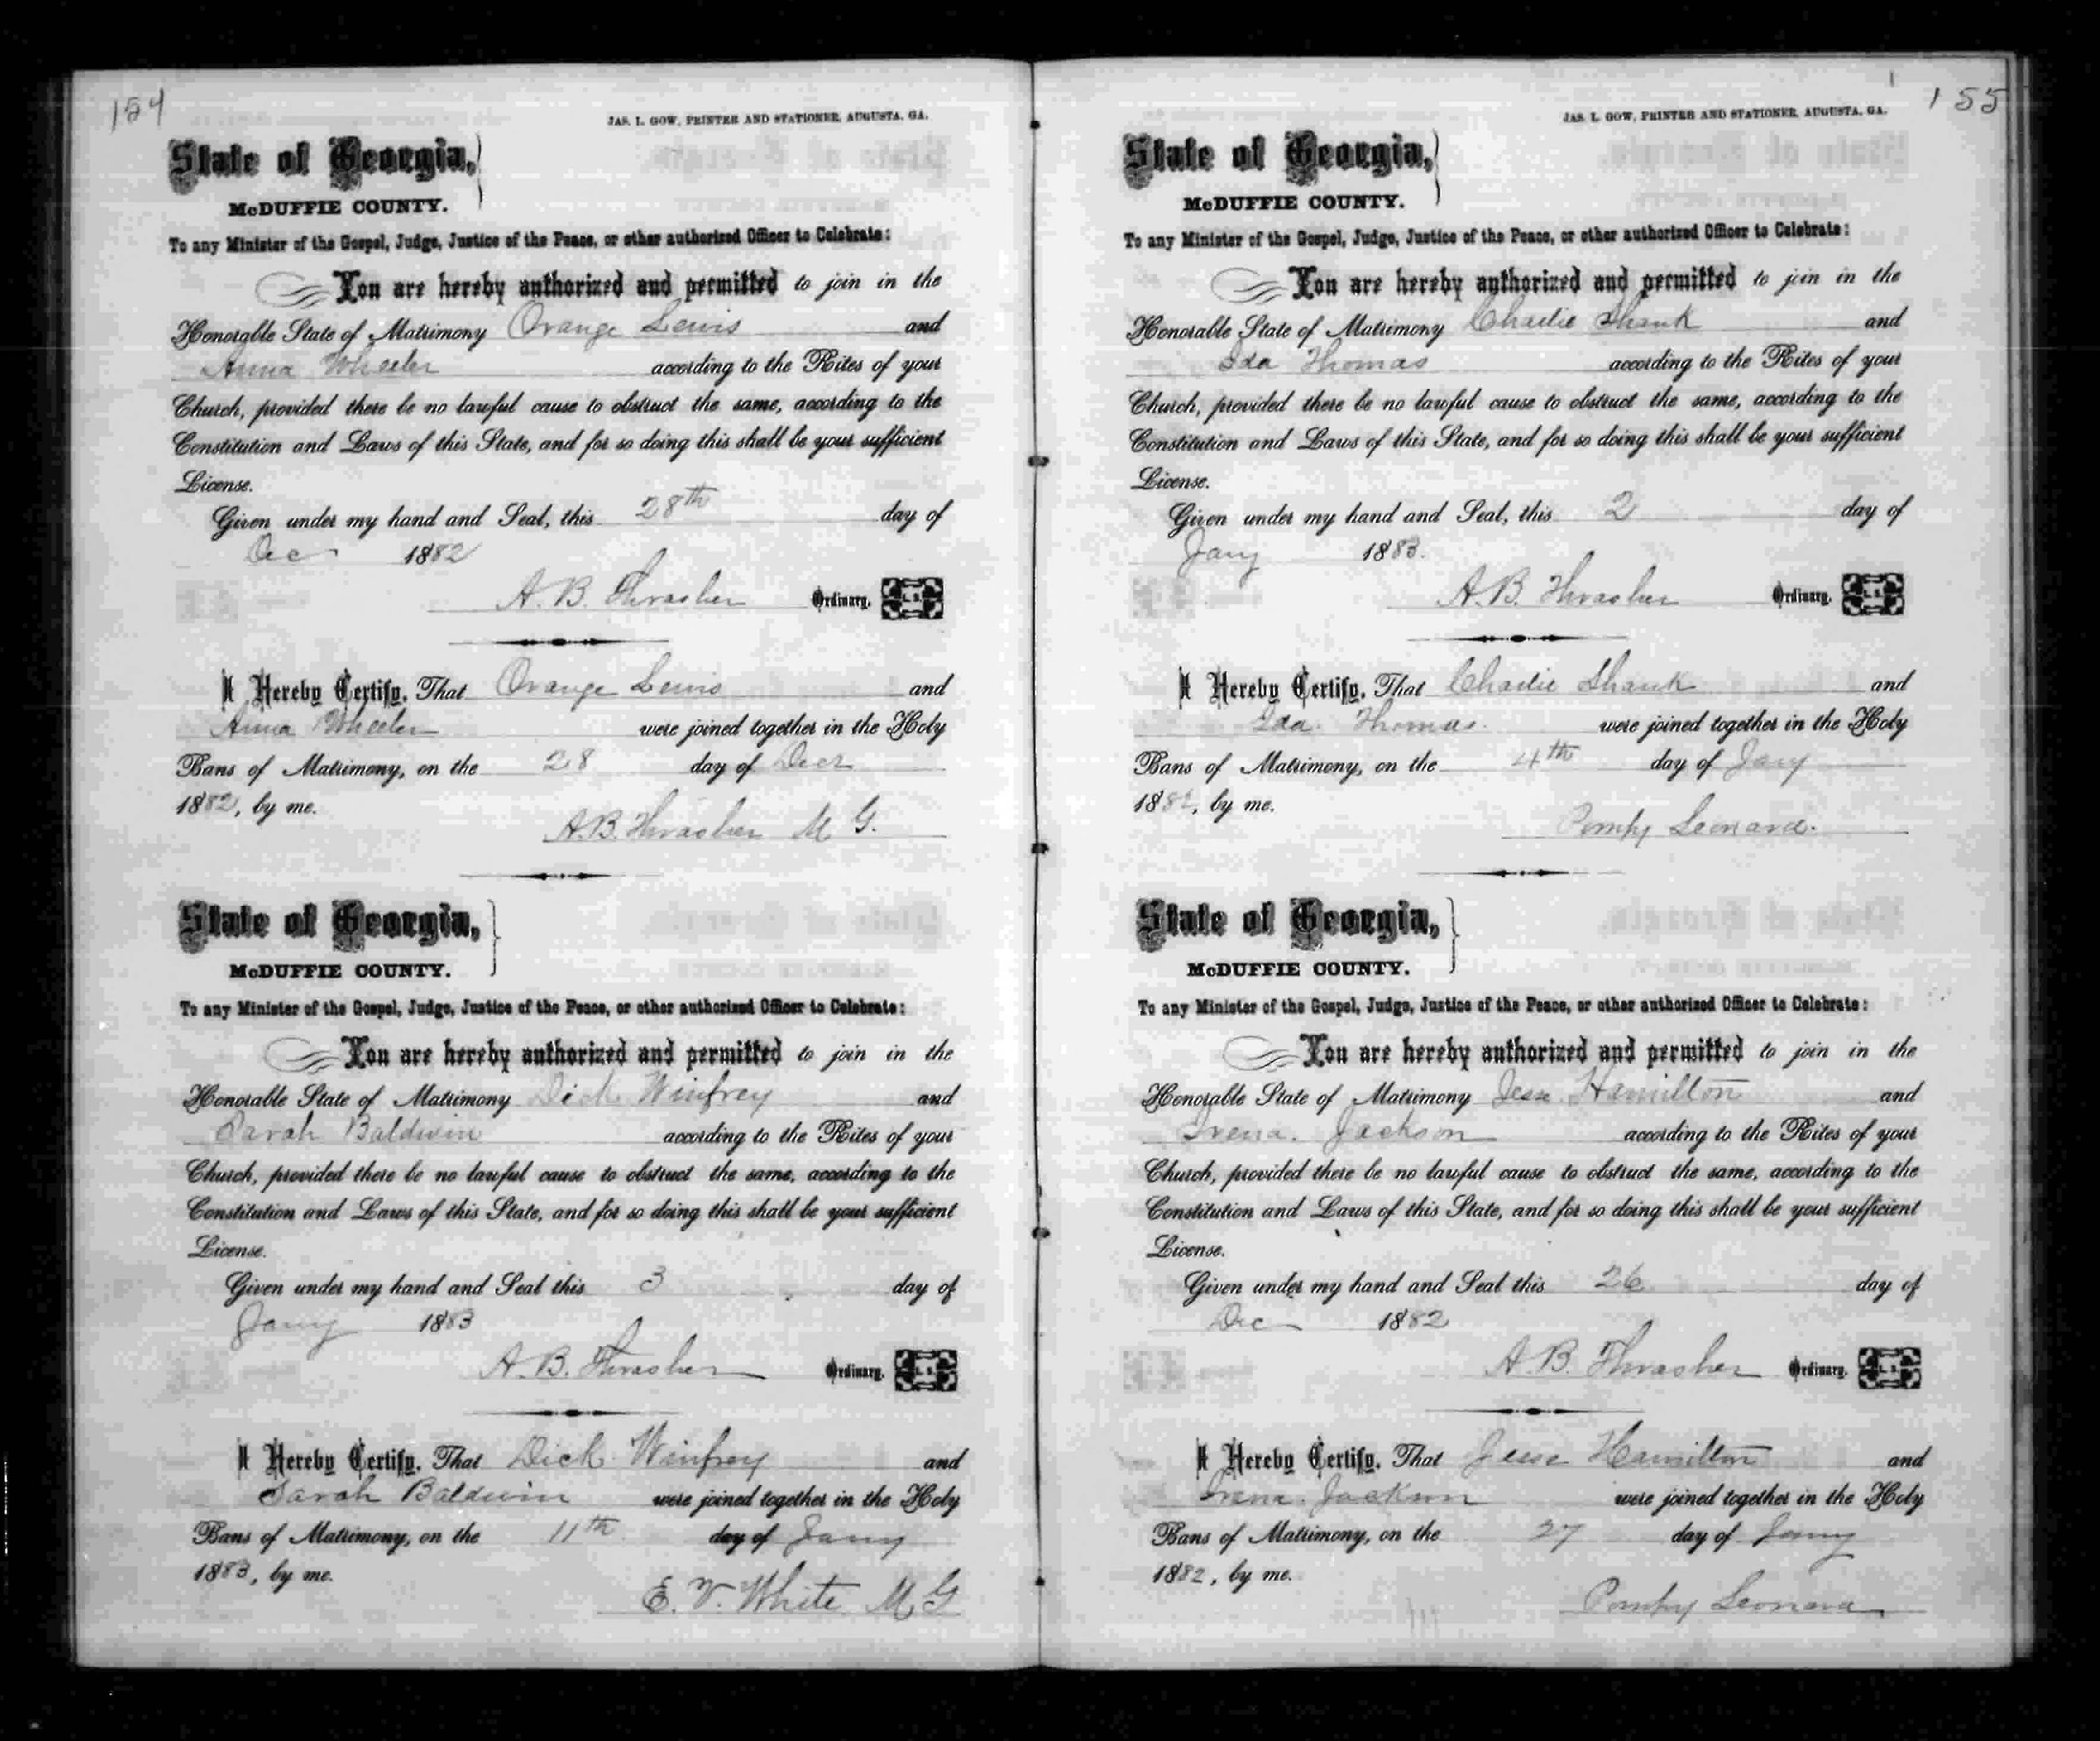 154
JAS. L. GOW, PRINTER AND STATIONER, AUGUSTA, GA.
State of Georgia,
McDUFFIE COUNTY.
To any Minister of the Gospel, Judge, Justice of the Peace, or other authorized Officer to Celebrate:
You are hereby authorized and permitted to join in the
Honorable State of Matrimony Orange Lewis and
Anna Wheeler according to the Rites of your
Church, provided there be no lawful cause to obstruct the same, according to the
Constitution and Laws of this State, and for so doing this shall be your sufficient
License.
Given under my hand and Seal, this 28th day of
Dec 1882
A. B. Thrasher Ordinary. L. S.
I Hereby Certify, That Orange Lewis and
Anna Wheeler were joined together in the Holy
Bans of Matrimony, on the 28 day of Decr
1882, by me.
A. B. Thrasher M G.
State of Georgia,
McDUFFIE COUNTY.
To any Minister of the Gospel, Judge, Justice of the Peace, or other authorized Officer to Celebrate:
You are hereby authorized and permitted to join in the
Honorable State of Matrimony Dick Winfrey and
Sarah Baldwin according to the Rites of your
Church, provided there be no lawful cause to obstruct the same, according to the
Constitution and Laws of this State, and for so doing this shall be your sufficient
License.
Given under my hand and Seal this 3 day of
Jany 1883
A. B. Thrasher Ordinary. L. S.
I Hereby Certify, That Dick Winfrey and
Sarah Baldwin were joined together in the Holy
Bans of Matrimony, on the 11th day of Jany
1883, by me.
E. V. White M G
155
JAS. L. GOW, PRINTER AND STATIONER, AUGUSTA, GA.
State of Georgia,
McDUFFIE COUNTY.
To any Minister of the Gospel, Judge, Justice of the Peace, or other authorized Officer to Celebrate:
You are hereby authorized and permitted to join in the
Honorable State of Matrimony Charlie Shank and
Ida Thomas according to the Rites of your
Church, provided there be no lawful cause to obstruct the same, according to the
Constitution and Laws of this State, and for so doing this shall be your sufficient
License.
Given under my hand and Seal, this 2 day of
Jany 1883.
A. B. Thrasher Ordinary. L. S.
I Hereby Certify, That Charlie Shank and
Ida Thomas. were joined together in the Holy
Bans of Matrimony, on the 4th day of Jany
by me.
Pomhy Leonard.
State of Georgia,
McDUFFIE COUNTY.
To any Minister of the Gospel, Judge, Justice of the Peace, or other authorized Officer to Celebrate:
You are hereby authorized and permitted to join in the
Honorable State of Matrimony Jesse Hamilton and
Irena. Jackson according to the Rites of your
Church, provided there be no lawful cause to obstruct the same, according to the
Constitution and Laws of this State, and for so doing this shall be your sufficient
License.
Given under my hand and Seal this 26 day of
Dec 1882
A. B. Thrasher Ordinary. L. S.
I Hereby Certify, That Jesse Hamilton and
Irena. Jackson were joined together in the Holy
Bans of Matrimony, on the 27 day of Jany
1882, by me.
Pomhy Leonard